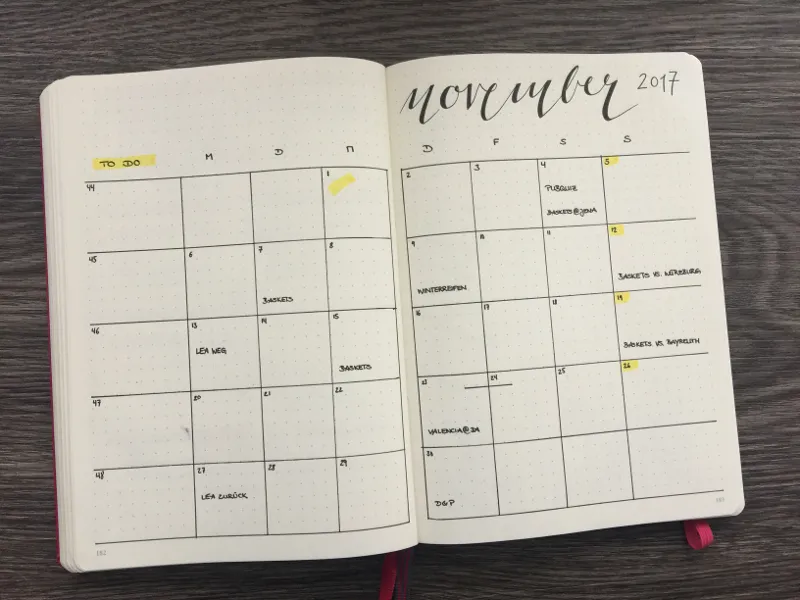 november 2017
TO DO M D M D F S S
44 1 2 3 4 5
PUBQUIZ
BASKETS@JENA
45 6 7 8 9 10 11 12
BASKETS WINTERREIFEN BASKETS VS. WÜRZBURG
46 13 14 15 16 17 18 19
LEA WEG BASKETS BASKETS VS. BAYREUTH
47 20 21 22 23 24 25 26
VALENCIA@BA
48 27 28 29 30
LEA ZURÜCK DGP
182 183